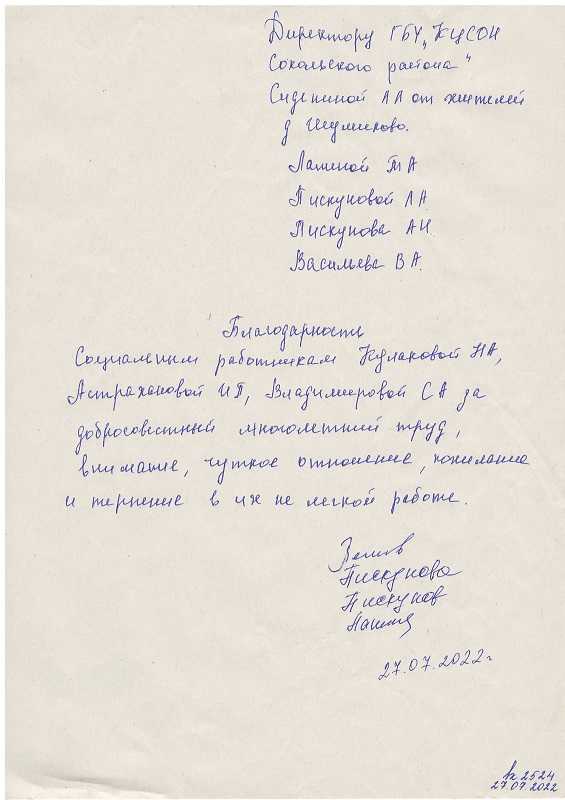 Директору ГБУ „КЦСОН
Сокольского района"
Сидениной ЛЛ от жителей
д Шумилово.
Лапиной ТА
Пискуновой ЛА
Пискунова АИ.
Васильева ВА.
Благодарность
Социальным работникам Кулаковой НА,
Астрахановой ИП, Владимировой СА за
добросовестный многолетний труд,
внимание, чуткое отношение, понимание
и терпение в их не легкой работе.
Пискунова
Пискунов
27.07.2022г
вх 2524
27.07.2022